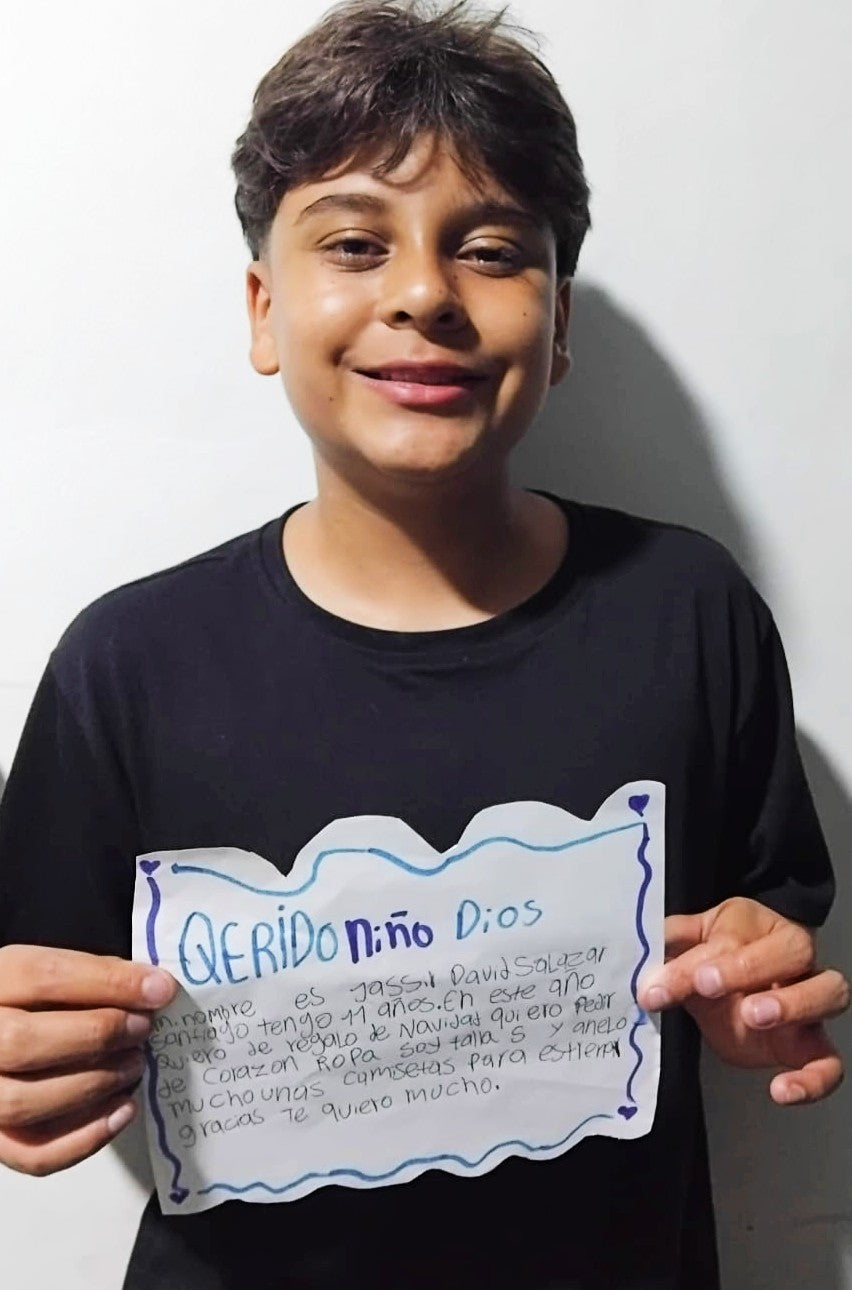 QERIDO Niño Dios
mi nombre es Jassil David Salazar
santiago tengo 11 años. En este año
quiero de regalo de Navidad quiero Pedir
de corazon Ropa soy talla S y anelo
mucho unas camisetas para estrenar
gracias Te quiero mucho.